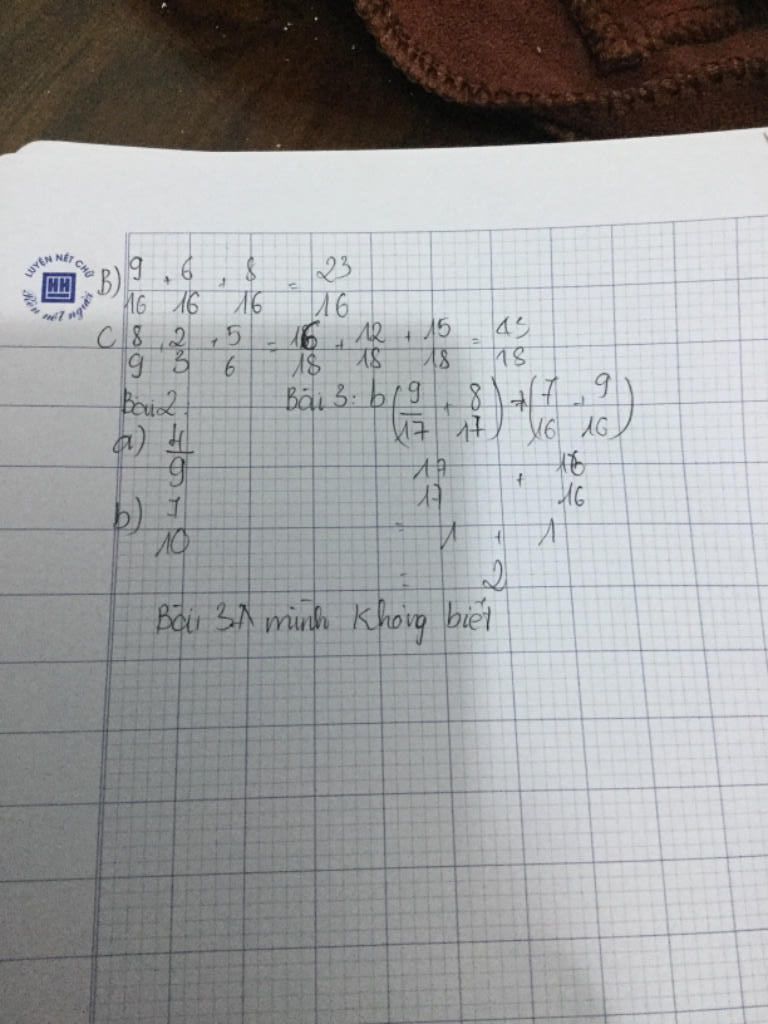 LUYỆN NÉT CHỮ
HH
Rèn nết người
B) 9/16 + 6/16 + 8/16 = 23/16
C 8/9 + 2/3 + 5/6 = 16/18 + 12/18 + 15/18 = 43/18
Bài 2: Bài 3: b (9/17 + 8/17) + (7/16 + 9/16)
a) 4/9
17/17 + 16/16
b) 7/10
= 1 + 1
= 2
Bài 3A mình không biết